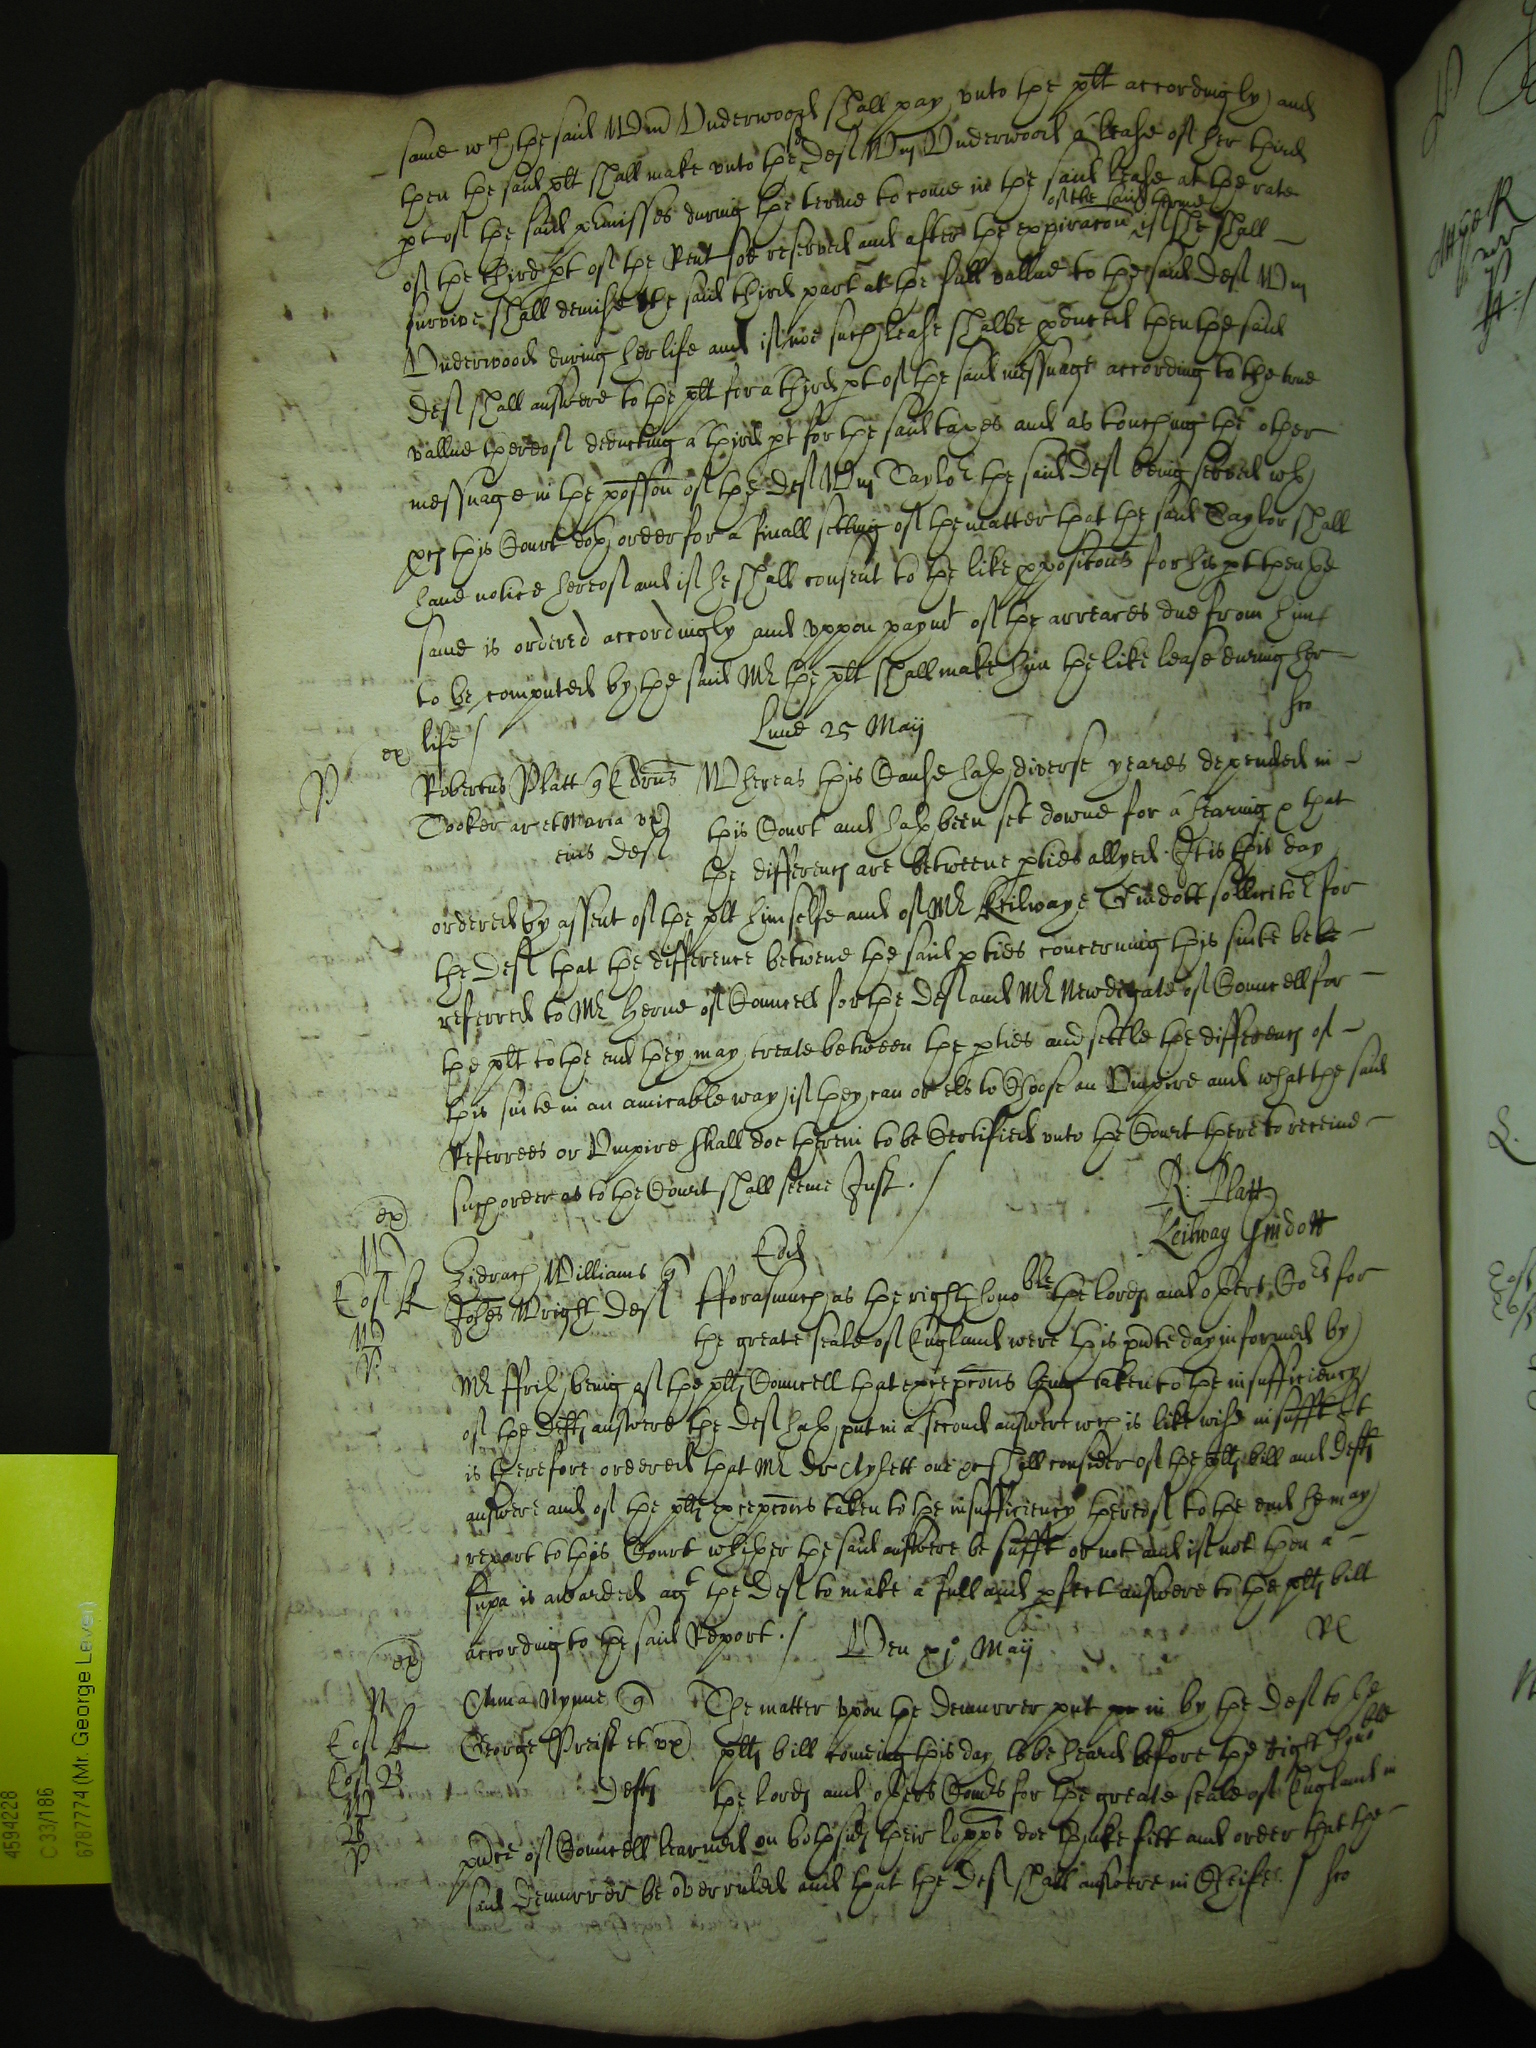 same wch the said Wm Underwood shall pay unto the plt accordingly and
then the said plt shall make unto the sd Deft Wm Underwood a lease of her third
pt of the said pmisses during the terme to come in the said lease at the rate
of the third pt of the Rent soe reserved and after the expiracon of the said terme if she shall
survive shall demise the said third part at the full vallue to the said Deft Wm
Underwood during her life and if noe such lease shalbe pduced then the said
Deft shall answere to the plt for a third pt of the said messuage according to the true
vallue thereof deducting a third pt for the said taxes and as touching the other
messuage in the possion of the Deft Wm Taylor the said Deft being served wth
pces this Court doth order for a finall setling of the matter that the said Taylor shall
have notice hereof and if he shall consent to the like pposicons for his pt then the
same is ordered accordingly and uppon paymt of the arreares due from him
to be computed by the said Mr the plt shall make him the like lease during her
life /
Lune 25 May
ex
P
Robertus Platt q Edrus Whereas this Cause hath diverse yeares depended in
Tooker ar et Maria ux this Court and hath been set downe for a hearing & that
eius Deft the differencs are betweene pties allyed. It is this day
ordered by assent of the plt himselfe and of Mr Keilwaye Gwidott sollicitor for
the Deft that the difference betwene the said pties concerning this suite be
referred to Mr Herne of Councell for the Deft and Mr Newdegate of Councell for
the plt to the end they may treate between the pties and settle the differencs of
this suite in an amicable way if they can or els to Choose an Umpire and what the said
Referrees or Umpire shall doe therein to be Certified unto the Court there to receive
such order as to the Court shall seeme Just. /
R: Platt
Keilway Gwidott
ex
Eod
Zidrach Williams q
Johes Wright Deft fforasmuch as the right honoble the lords and others Cors for
the greate seale of England were this pnte day informed by
Mr ffrith being of the plts Councell that excepcons being taken to the insufficiency
of the Defts answere the Deft hath put in a second answere wch is likewise insufft It
is therefore ordered that Mr Dr Aylett one &c shall consider of the plts bill and Defts
answere and of the plts excepcons taken to the insufficiency thereof to the end he may
report to this Court whether the said answere be sufft or not and if not then a
supa is awarded agt the Deft to make a full and pfect answere to the plts bill
according to the said Report. /
Ven xj May
ex
Anna Nynne q The matter upon the Demurrer put in by the Deft to the
George Preist et ux plts bill comeing this day to be heard before the right honoble
Defts the lords and others Comrs for the greate seale of England in
pnce of Councell learned on both sids their lopps doe thinke fitt and order that the
said Demurrer be overruled and that the Deft shall answere in Cheife /
4594228
C 33/186
6787774 (Mr. George Lever)